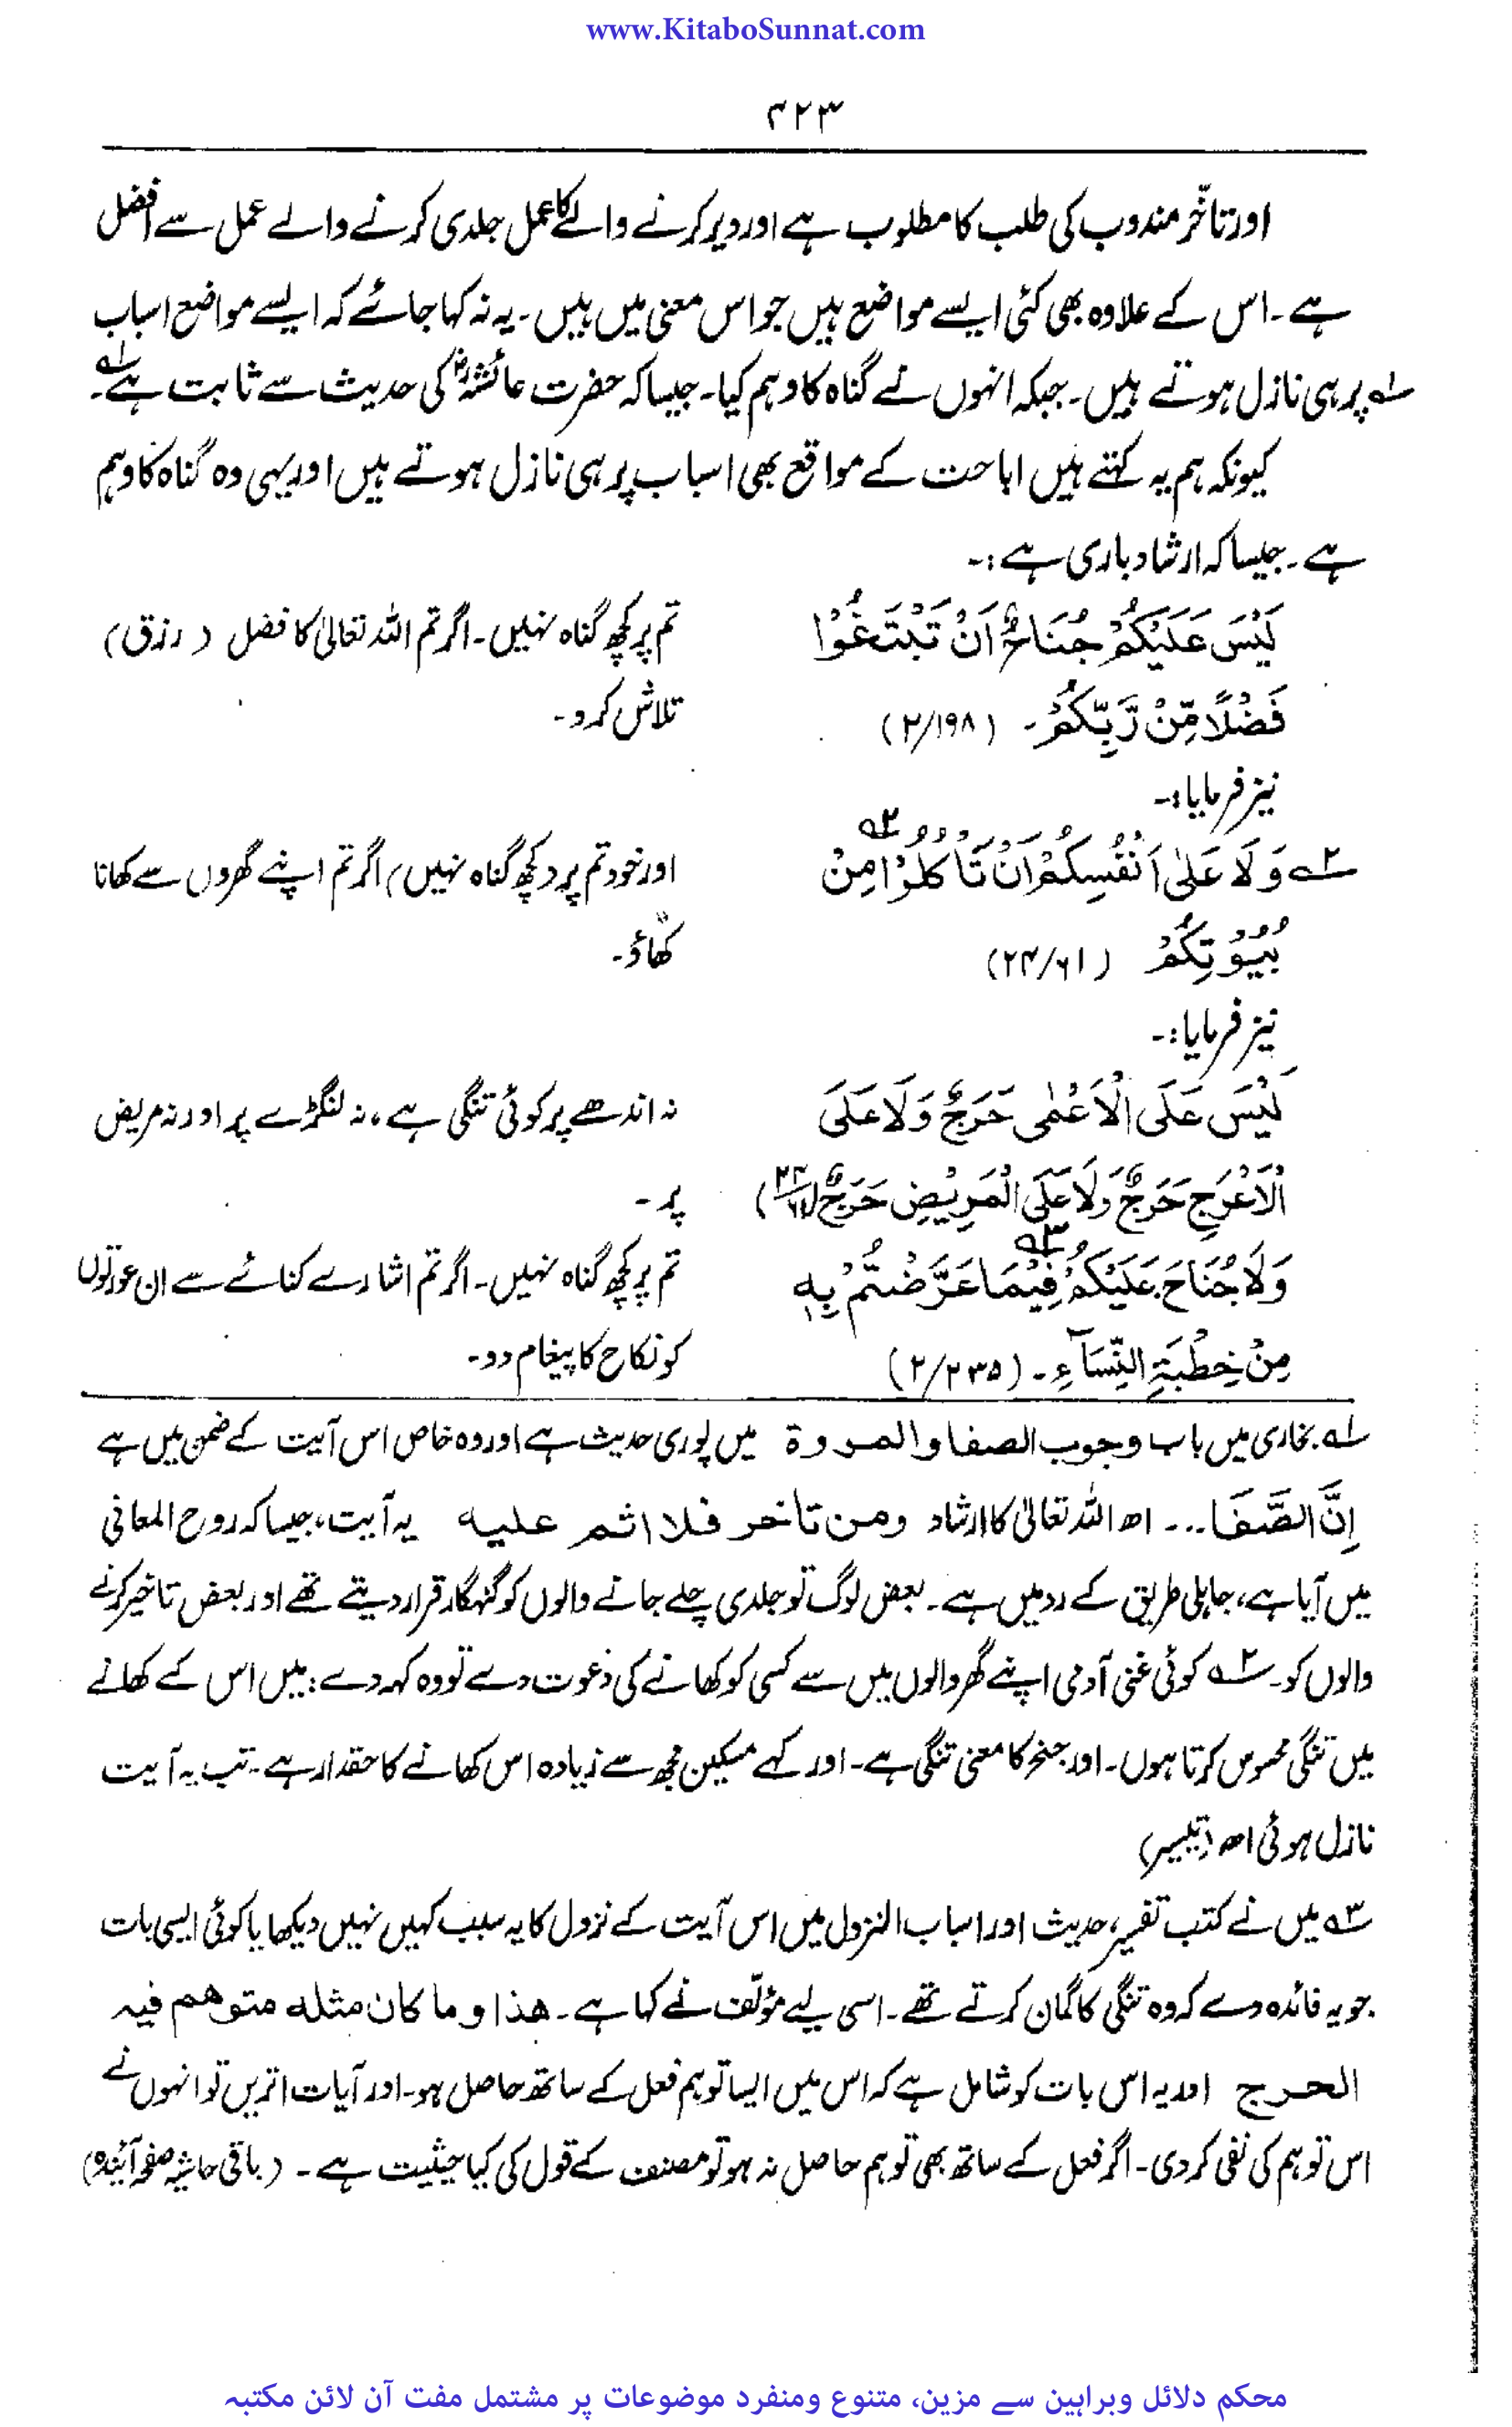 www.KitaboSunnat.com
۴۲۳
اور تاخّر مندوب کی طلب کا مطلوب ہے اور دیر کرنے والے کا عمل جلدی کرنے والے عمل سے افضل
ہے۔ اس کے علاوہ بھی کئی ایسے مواضع ہیں جو اس معنی میں ہیں۔ یہ نہ کہا جائے کہ ایسے مواضع اسباب
لہ پر ہی نازل ہوتے ہیں۔ جبکہ انہوں نے گناہ کا وہم کیا۔ جیسا کہ حضرت عائشہؓ کی حدیث سے ثابت ہے لہ۔
کیونکہ ہم یہ کہتے ہیں اباحت کے مواقع بھی اسباب پر ہی نازل ہوتے ہیں اور یہی وہ گناہ کا وہم
ہے۔ جیسا کہ ارشاد باری ہے:۔
لَيْسَ عَلَيْكُمْ جُنَاحٌ اَنْ تَبْتَغُوْا تم پر کچھ گناہ نہیں۔ اگر تم اللہ تعالیٰ کا فضل (رزق)
فَضْلًا مِّنْ رَّبِّكُمْ۔ (۲/۱۹۸) تلاش کرو۔
نیز فرمایا:۔
۲ہ وَلَا عَلٰى اَنْفُسِكُمْ اَنْ تَاْكُلُوْا ۲ہ مِنْ اور خود تم پر (کچھ گناہ نہیں) اگر تم اپنے گھروں سے کھانا
بُيُوْتِكُمْ (۲۴/۶۱) کھاؤ۔
نیز فرمایا:۔
لَيْسَ عَلَى الْاَعْمٰى حَرَجٌ وَلَا عَلَى نہ اندھے پر کوئی تنگی ہے، نہ لنگڑے پر اور نہ مریض
الْاَعْرَجِ حَرَجٌ وَلَا عَلَى الْمَرِيْضِ حَرَجٌ (۲۴/۶۱) پر۔
وَلَا جُنَاحَ عَلَيْكُمْ ۳ہ فِيْمَا عَرَّضْتُمْ بِهٖ تم پر کچھ گناہ نہیں۔ اگر تم اشارے کنائے سے ان عورتوں
مِنْ خِطْبَةِ النِّسَآءِ۔ (۲/۲۳۵) کو نکاح کا پیغام دو۔
لہ بخاری میں باب وجوب الصفا والمروۃ میں پوری حدیث ہے اور وہ خاص اس آیت کے ضمن میں ہے
اِنَّ الصَّفَا... اھ اللہ تعالیٰ کا ارشاد ومن تاخر فلا اثم علیہ یہ آیت، جیسا کہ روح المعانی
میں آیا ہے، جاہلی طریق کے رد میں ہے۔ بعض لوگ تو جلدی چلے جانے والوں کو گنہگار قرار دیتے تھے اور بعض تاخیر کرنے
والوں کو۔ ۲ہ کوئی غنی آدمی اپنے گھر والوں میں سے کسی کو کھانے کی دعوت دے تو وہ کہہ دے: میں اس کے کھانے
میں تنگی محسوس کرتا ہوں۔ اور جنح کا معنی تنگی ہے۔ اور کہے مسکین مجھ سے زیادہ اس کھانے کا حقدار ہے۔ تب یہ آیت
نازل ہوئی اھ (تیسیر)
۳ہ میں نے کتب تفسیر، حدیث اور اسباب النزول میں اس آیت کے نزول کا یہ سبب کہیں نہیں دیکھا یا کوئی ایسی بات
جو یہ فائدہ دے کہ وہ تنگی کا گمان کرتے تھے۔ اسی لیے مؤلّف نے کہا ہے۔ ھذا وما کان مثلہ متوھم فیہ
الحرج اور یہ اس بات کو شامل ہے کہ اس میں ایسا توہم فعل کے ساتھ حاصل ہو۔ اور آیات اتریں تو انہوں نے
اس توہم کی نفی کر دی۔ اگر فعل کے ساتھ بھی توہم حاصل نہ ہو تو مصنف کے قول کی کیا حیثیت ہے۔ (باقی حاشیہ صفحہ آئندہ)
محکم دلائل وبراہین سے مزین، متنوع ومنفرد موضوعات پر مشتمل مفت آن لائن مکتبہ